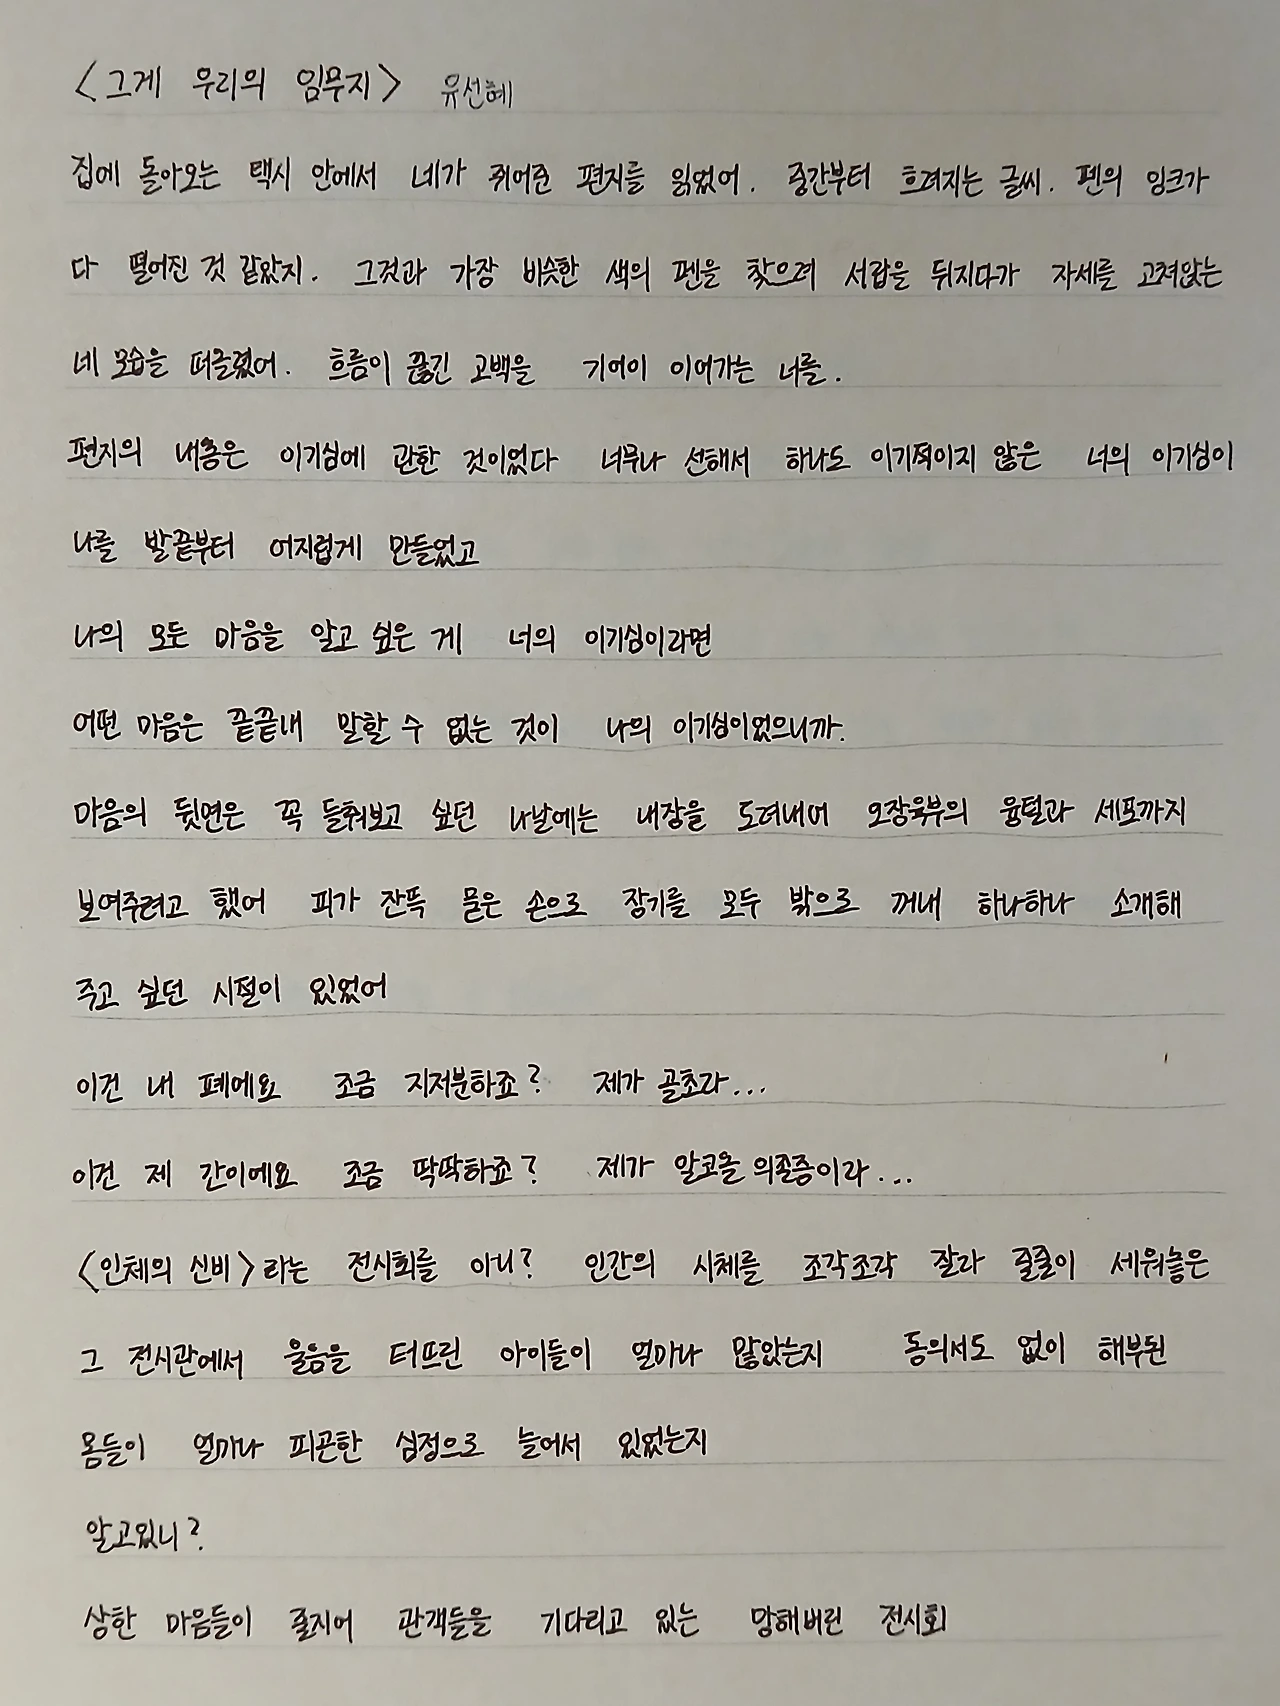 <그게 우리의 임무지> 유선혜
집에 돌아오는 택시 안에서 네가 쥐여준 편지를 읽었어. 중간부터 흐려지는 글씨. 펜의 잉크가
다 떨어진 것 같았지. 그것과 가장 비슷한 색의 펜을 찾으려 서랍을 뒤지다가 자세를 고쳐앉는
네 모습을 떠올렸어. 흐름이 끊긴 고백을 기어이 이어가는 너를.
편지의 내용은 이기심에 관한 것이었다 너무나 선해서 하나도 이기적이지 않은 너의 이기심이
나를 발끝부터 어지럽게 만들었고
나의 모든 마음을 알고 싶은 게 너의 이기심이라면
어떤 마음은 끝끝내 말할 수 없는 것이 나의 이기심이었으니까.
마음의 뒷면은 꼭 들춰보고 싶던 나날에는 내장을 도려내어 오장육부의 융털과 세포까지
보여주려고 했어 피가 잔뜩 묻은 손으로 장기를 모두 밖으로 꺼내 하나하나 소개해
주고 싶던 시절이 있었어
이건 내 폐예요 조금 지저분하죠? 제가 골초라...
이건 제 간이에요 조금 딱딱하죠? 제가 알코올 의존증이라...
<인체의 신비>라는 전시회를 아니? 인간의 시체를 조각조각 잘라 줄줄이 세워놓은
그 전시관에서 울음을 터뜨린 아이들이 얼마나 많았는지 동의서도 없이 해부된
몸들이 얼마나 피곤한 심정으로 늘어서 있었는지
알고있니?
상한 마음들이 줄지어 관객들을 기다리고 있는 망해버린 전시회